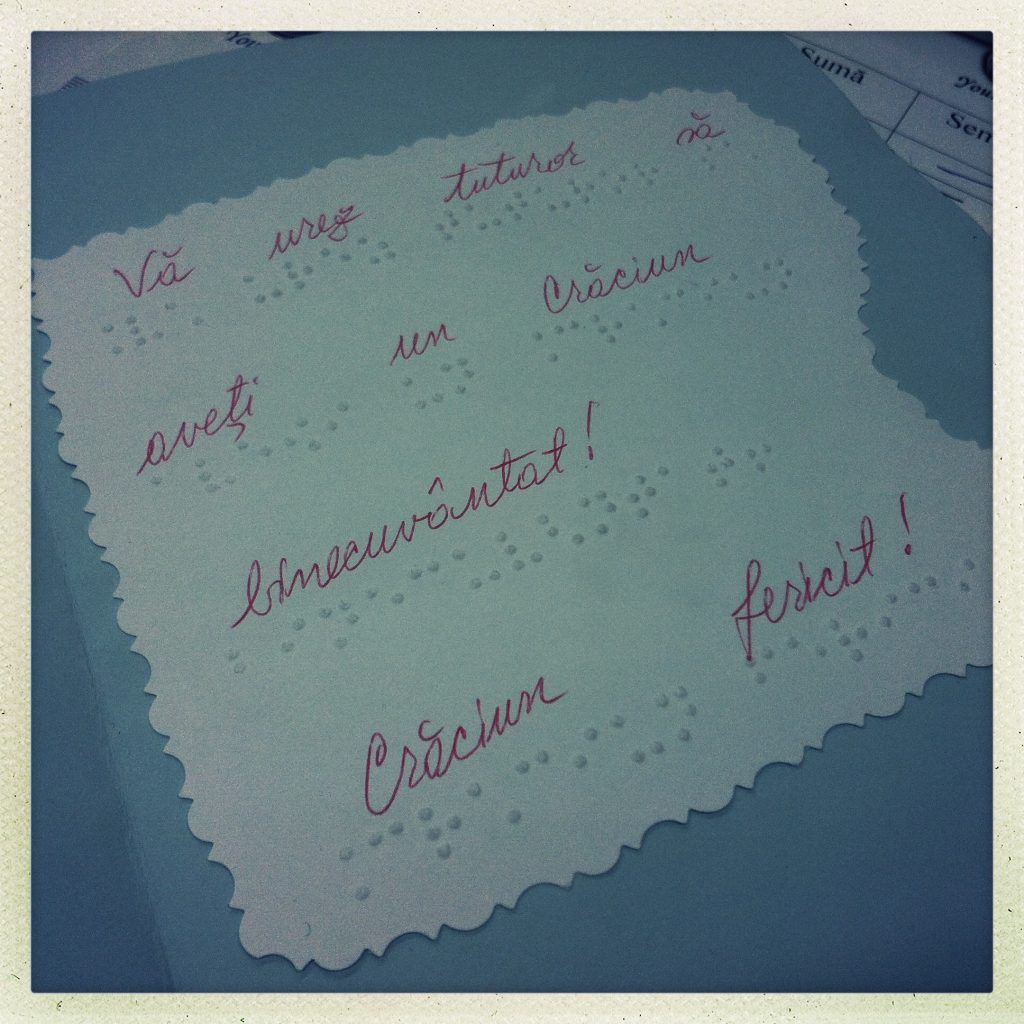 Vă urez tuturor să
aveți un Crăciun
binecuvântat!
Crăciun fericit!
You
Sumă
You
Sem